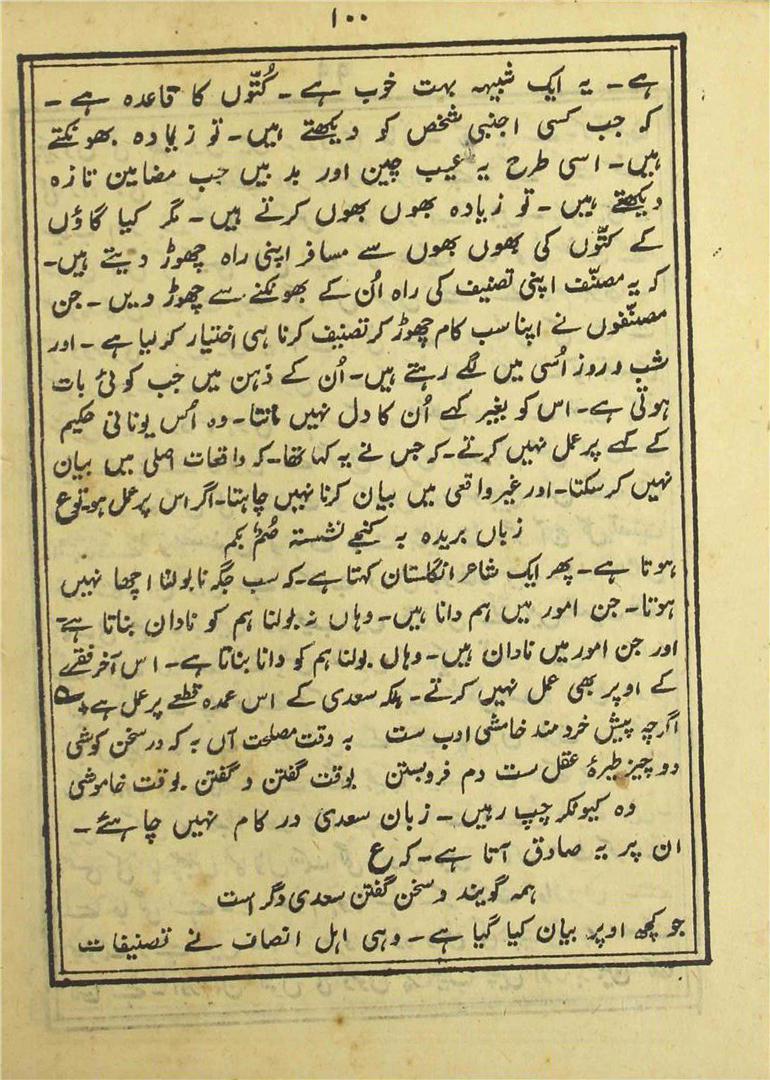 ۱۰۰
ہے۔ یہ ایک شبیہہ بہت خوب ہے۔ کُتّوں کا قاعدہ ہے۔
کہ جب کسی اجنبی شخص کو دیکھتے ہیں۔ تو زیادہ بھونکتے
ہیں۔ اسی طرح یہ عیب چین اور بد بیں جب مضامین تازہ
دیکھتے ہیں۔ تو زیادہ بھوں بھوں کرتے ہیں۔ مگر کیا گاؤں
کے کتّوں کی بھوں بھوں سے مسافر اپنی راہ چھوڑ دیتے ہیں۔
کہ یہ مصنّف اپنی تصنیف کی راہ اُن کے بھونکنے سے چھوڑ دیں۔ جن
مصنّفوں نے اپنا سب کام چھوڑ کر تصنیف کرنا ہی اختیار کر لیا ہے۔ اور
شب و روز اُسی میں لگے رہتے ہیں۔ اُن کے ذہن میں جب کوئی بات
ہوتی ہے۔ اس کو بغیر کہے اُن کا دل نہیں مانتا۔ وہ اُس یونانی حکیم
کے کہے پر عمل نہیں کرتے۔ کہ جس نے یہ کہا تھا۔ کہ واقعات اصلی میں بیان
نہیں کر سکتا۔ اور غیر واقعی میں بیان کرنا نہیں چاہتا۔ اگر اس پر عمل ہو تو ع
زباں بریدہ بہ کنجے نشستہ صُمٌ بکم
ہوتا ہے۔ پھر ایک شاعر انگلستان کہتا ہے۔ کہ سب جگہ نا بولنا اچھا نہیں
ہوتا۔ جن امور میں ہم دانا ہیں۔ وہاں نہ بولنا ہم کو نادان بناتا ہے۔
اور جن امور میں نادان ہیں۔ وہاں بولنا ہم کو دانا بناتا ہے۔ اس آخر فقرے
کے اوپر بھی عمل نہیں کرتے۔ بلکہ سعدی کے اس عمدہ قطعے پر عمل ہے
اگرچہ پیش خردمند خامشی ادب ست بہ وقت مصلحت آں بہ کہ در سخن کوشی
دو چیز طیرۂ عقل ست دم فرو بستن بوقت گفتن و گفتن بوقت خاموشی
وہ کیونکر چپ رہیں۔ زبان سعدی در کام نہیں چاہئے۔
ان پر یہ صادق آتا ہے۔ کہ ع
ہمہ گویند و سخن گفتن سعدی دگر است
جو کچھ اوپر بیان کیا گیا ہے۔ وہی اہل انصاف نے تصنیفات